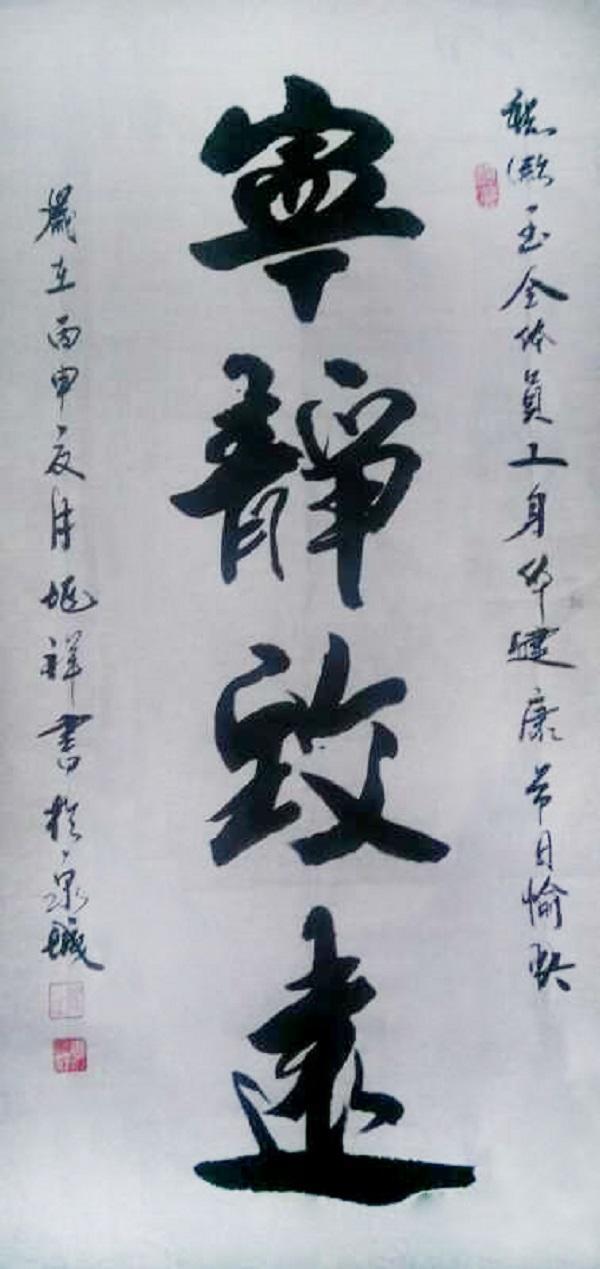 全体員工身体健康节日愉快
寧靜致遠
歲在丙申夏月祥書於泉城